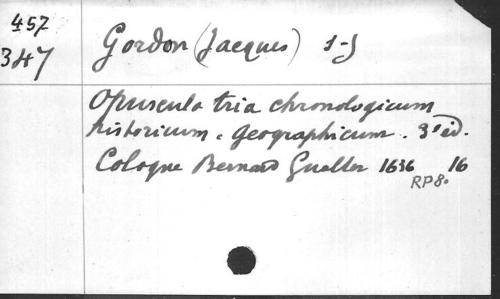 457
347
Gordon (Jacques) S-J
Opuscula tria chronologicum
historicum. geographicum. 3e éd.
Cologne Bernard Gualter 1636 16
RP8.